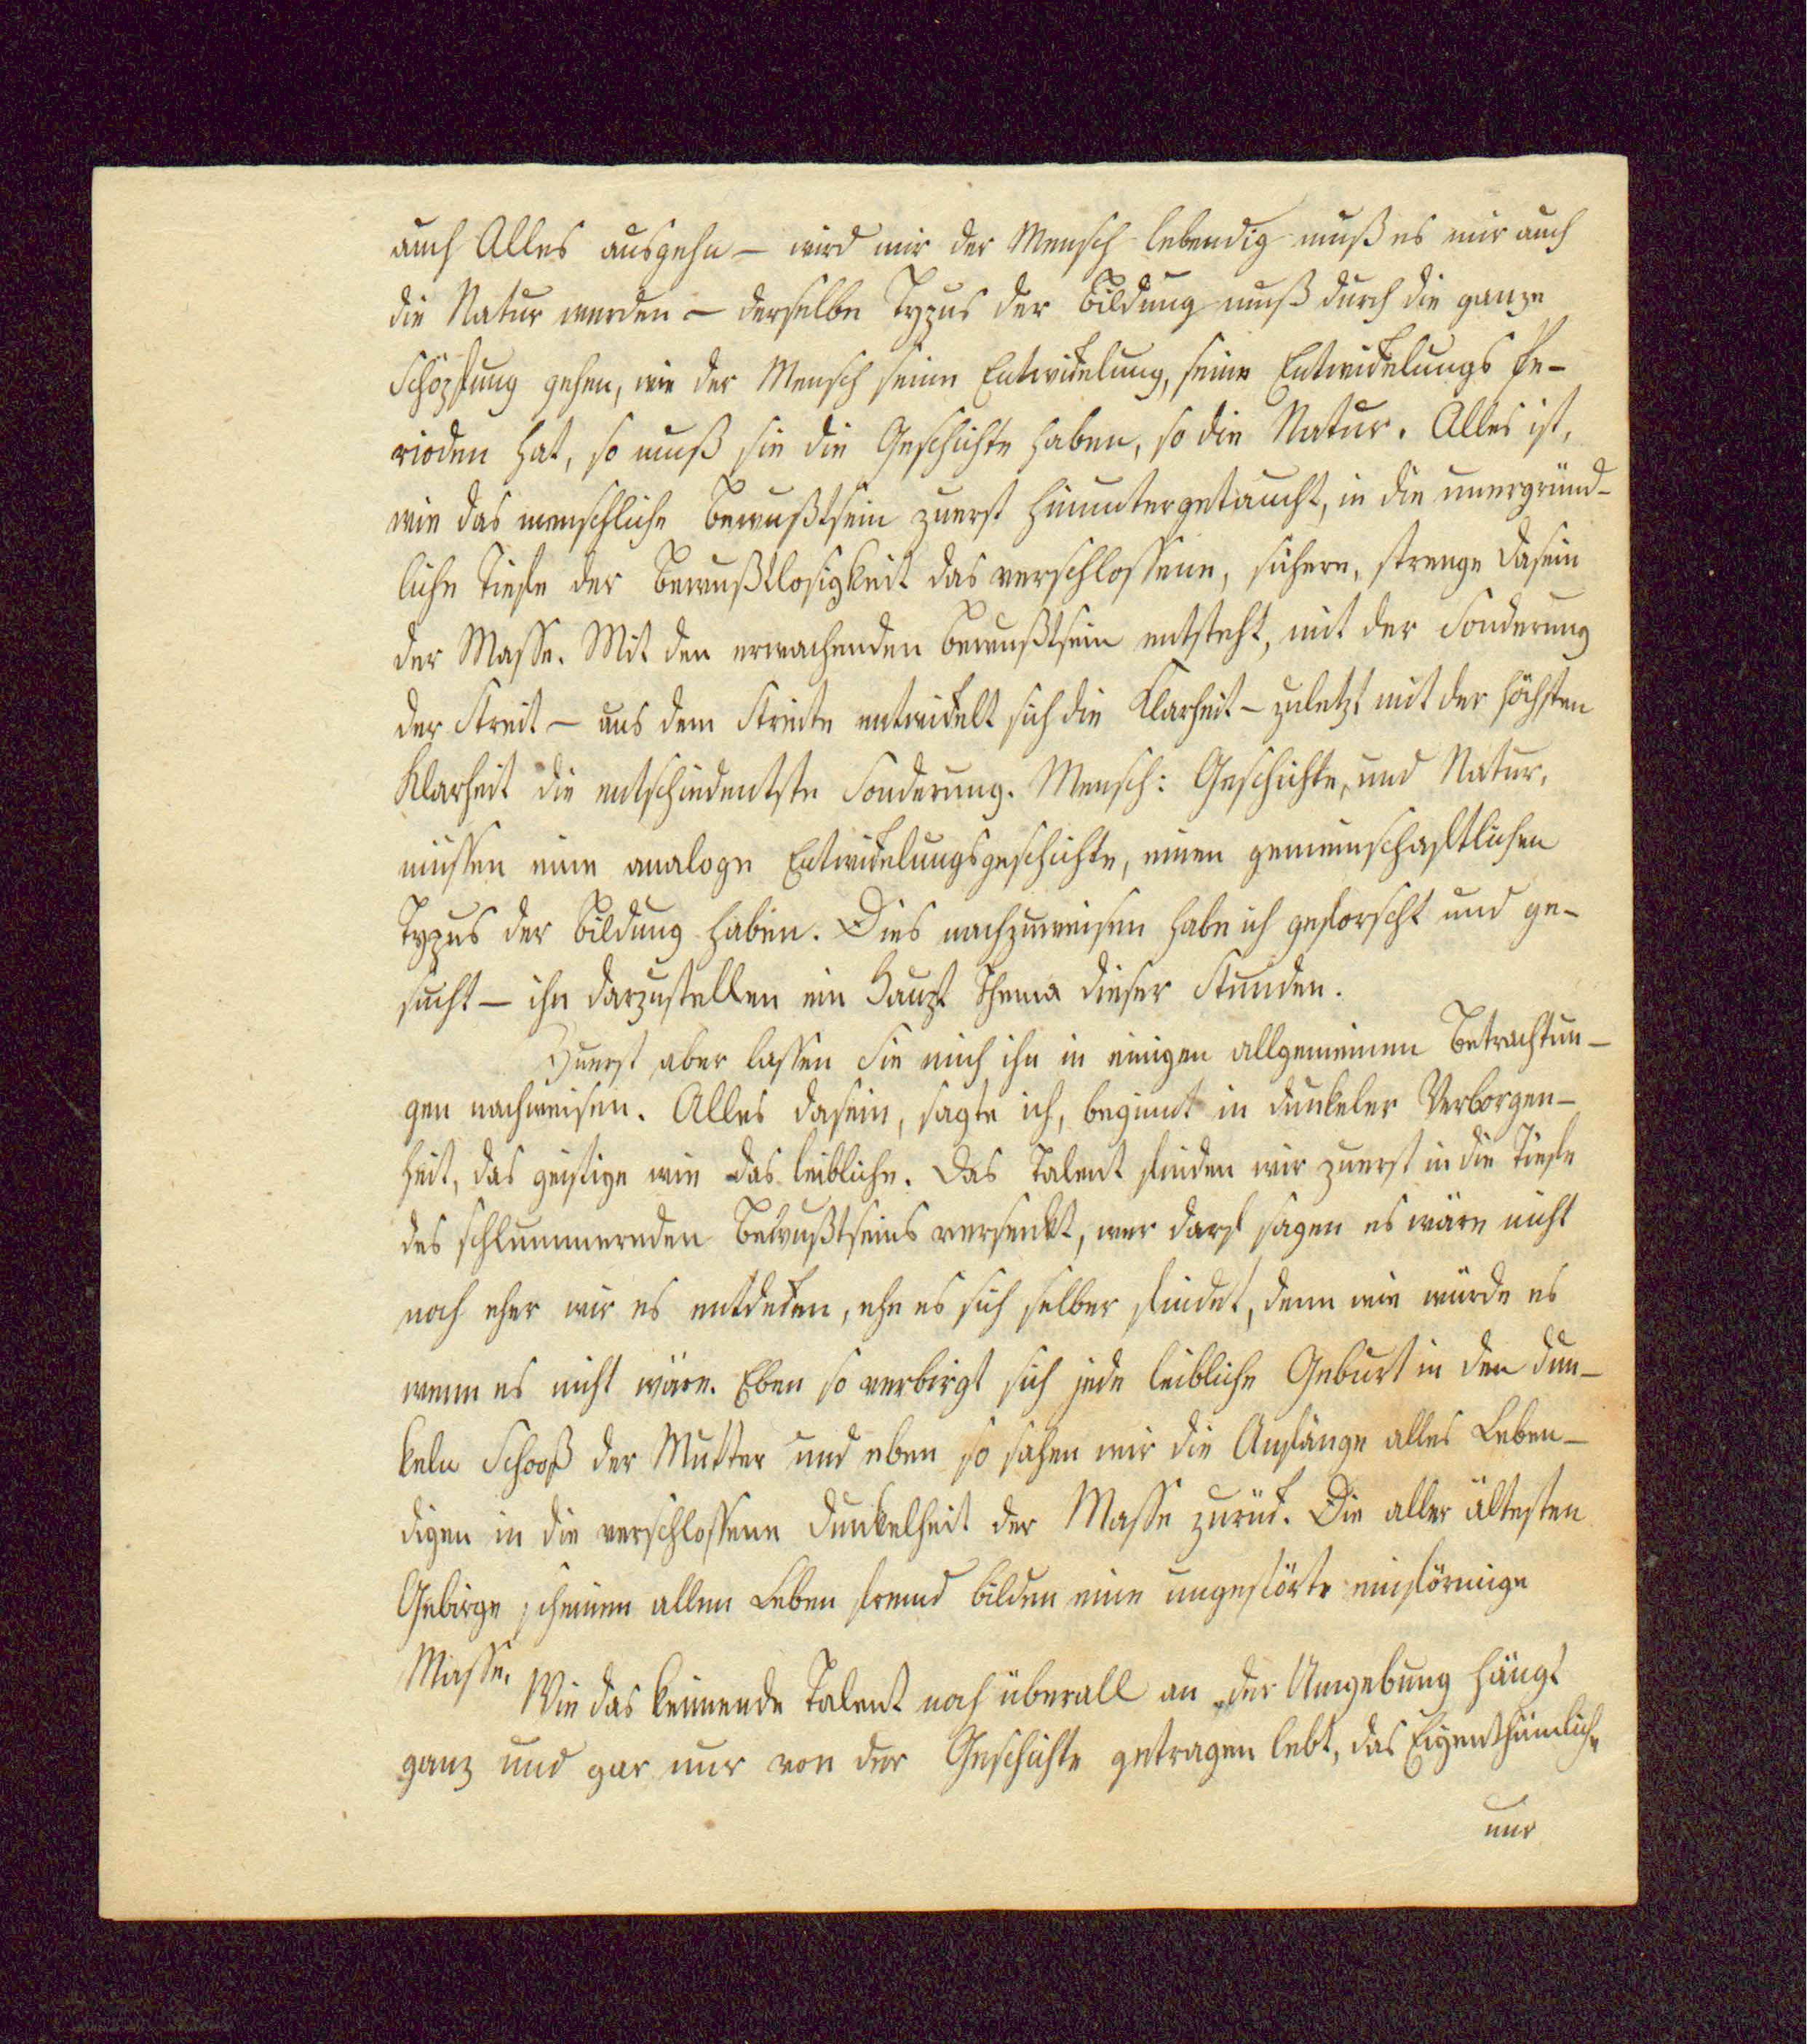 auch Alles ausgehn – wird mir der Mensch lebendig muß es mir auch
die Natur werden – derselbe Typus der Bildung muß durch die ganze
Schöpfung gehen, wie der Mensch seine Entwickelung, seine Entwickelungs Pe-
rioden hat, so muß sie die Geschichte haben, so die Natur. Alles ist,
wie das menschliche Bewußtsein zuerst hinuntergetaucht, in die unergründ-
liche Tiefe der Bewußtlosigkeit das verschlossene, sichere, strenge Dasein
der Masse. Mit den erwachenden Bewußtsein entsteht, mit der Sonderung
der Streit – aus dem Streite entwickelt sich die Klarheit – zuletzt mit der höchsten
Klarheit die entschiedentste Sonderung. Mensch: Geschichte, und Natur,
müssen eine analoge Entwickelungsgeschichte, einen gemeinschaftlichen
Typus der Bildung haben. Dies nachzuweisen habe ich geforscht und ge-
sucht – ihn darzustellen ein Haupt Thema dieser Stunden.
Zuerst aber lassen Sie mich ihn in einigen allgemeinen Betrachtun-
gen nachweisen. Alles Dasein, sagte ich, beginnt in dunkeler Verborgen-
heit, das geistige wie das leibliche. Das Talent finden wir zuerst in die Tiefe
des schlummernden Bewußtseins versenkt, wer darf sagen es wäre nicht
noch eher wir es entdecken, ehe es sich selber findet, denn wie würde es
wenn es nicht wäre. Eben so verbirgt sich jede leibliche Geburt in den dun-
keln Schooß der Mutter und eben so sahen wir die Anfänge alles Leben-
digen in die verschlossene Dunkelheit der Masse zurück. Die aller ältesten
Gebirge scheinen allem Leben fremd bilden eine ungestörte einförmige
Masse. Wie das keimende Talent noch überall an der Umgebung hängt
ganz und gar nur von der Geschichte getragen lebt, das Eigenthümliche
nur